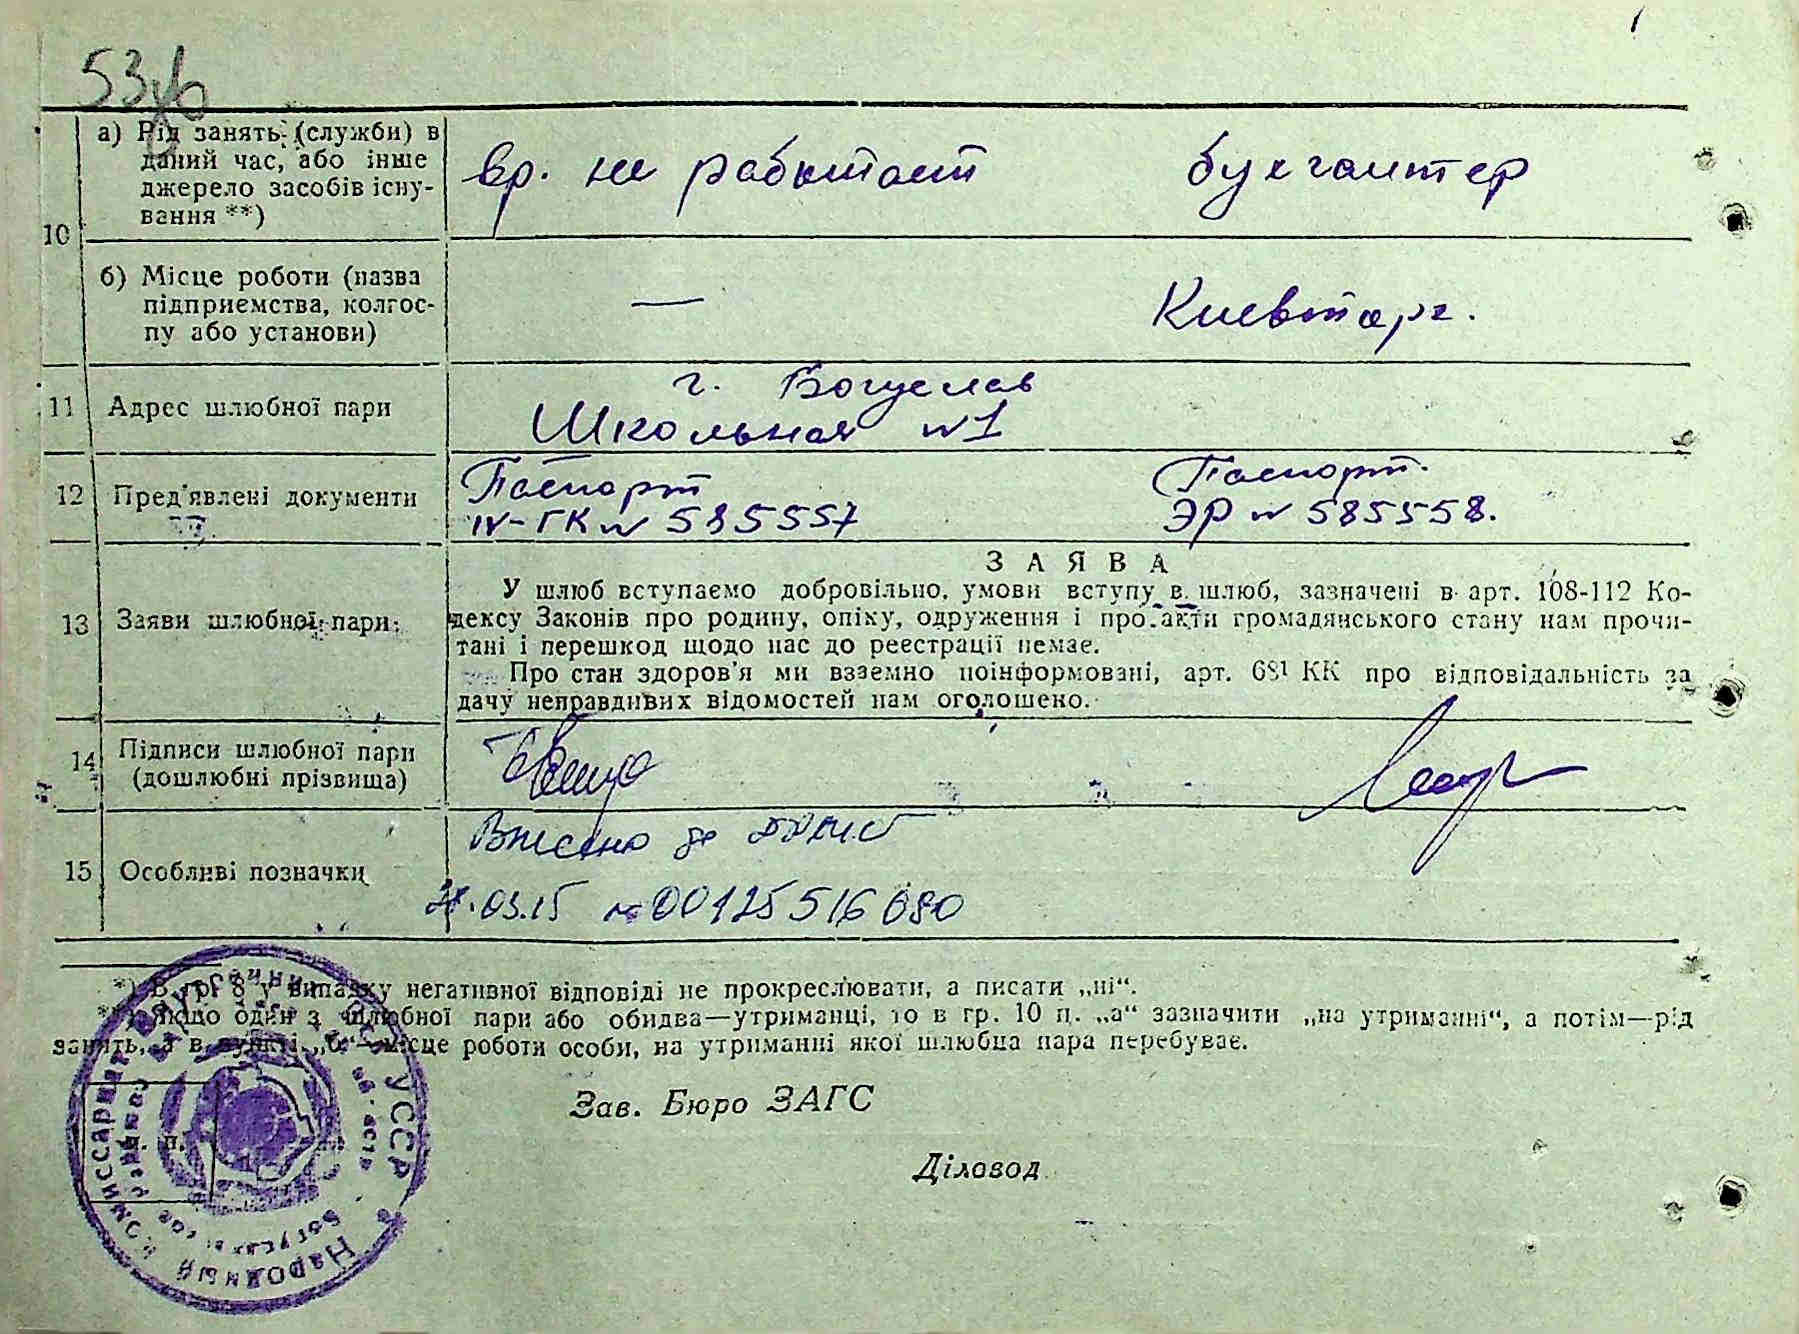 10
а) Рід занять (служби) в
даний час, або інше
джерело засобів існу-
вання **)
вр. не работает
бухгалтер
б) Місце роботи (назва
підприємства, колгос-
пу або установи)
—
Киевторг.
11
Адрес шлюбної пари
г. Богуслав
Школьная №1
12
Пред'явлені документи
Паспорт
IV-ГК № 585557
Паспорт.
ЭР № 585558.
13
Заяви шлюбної пари
ЗАЯВА
У шлюб вступаємо добровільно, умови вступу в шлюб, зазначені в арт. 108-112 Ко-
дексу Законів про родину, опіку, одруження і про акти громадянського стану нам прочи-
тані і перешкод щодо нас до реєстрації немає.
Про стан здоров'я ми взаємно поінформовані, арт. 68¹ КК про відповідальність за
дачу неправдивих відомостей нам оголошено.
14
Підписи шлюбної пари
(дошлюбні прізвища)
15
Особливі позначки
Внесено до
.03.15 № 00125516680
*) В гр. 8 у випадку негативної відповіді не прокреслювати, а писати „ні“.
**) Якщо один з шлюбної пари або обидва—утриманці, то в гр. 10 п. „а“ зазначити „на утриманні“, а потім—рід
занять, а в пункті „б“—місце роботи особи, на утриманні якої шлюбна пара перебуває.
Зав. Бюро ЗАГС
Діловод
Народный комиссариат УССР